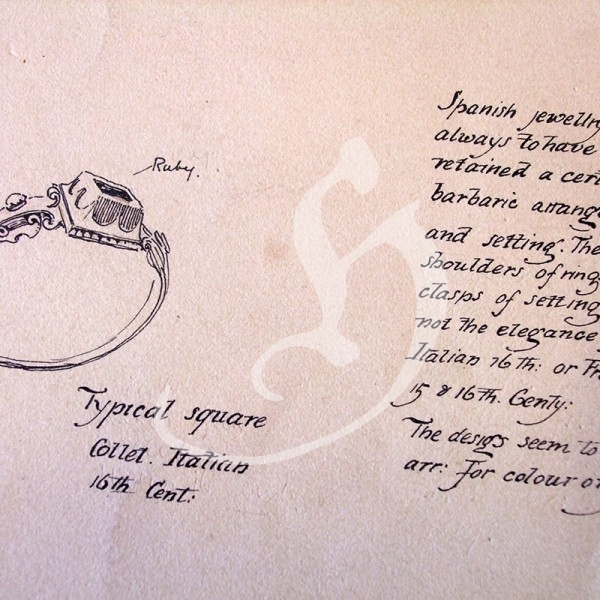 Ruby.
Typical square
Collet. Italian
16th Cent:
Spanish jewellry
always to have
retained a cert
barbaric arrange
and setting. The
shoulders of rings
clasps of setting
not the elegance
Italian 16th: or Fr
15 & 16th. Centy:
The desigs seem to
arr: for colour o